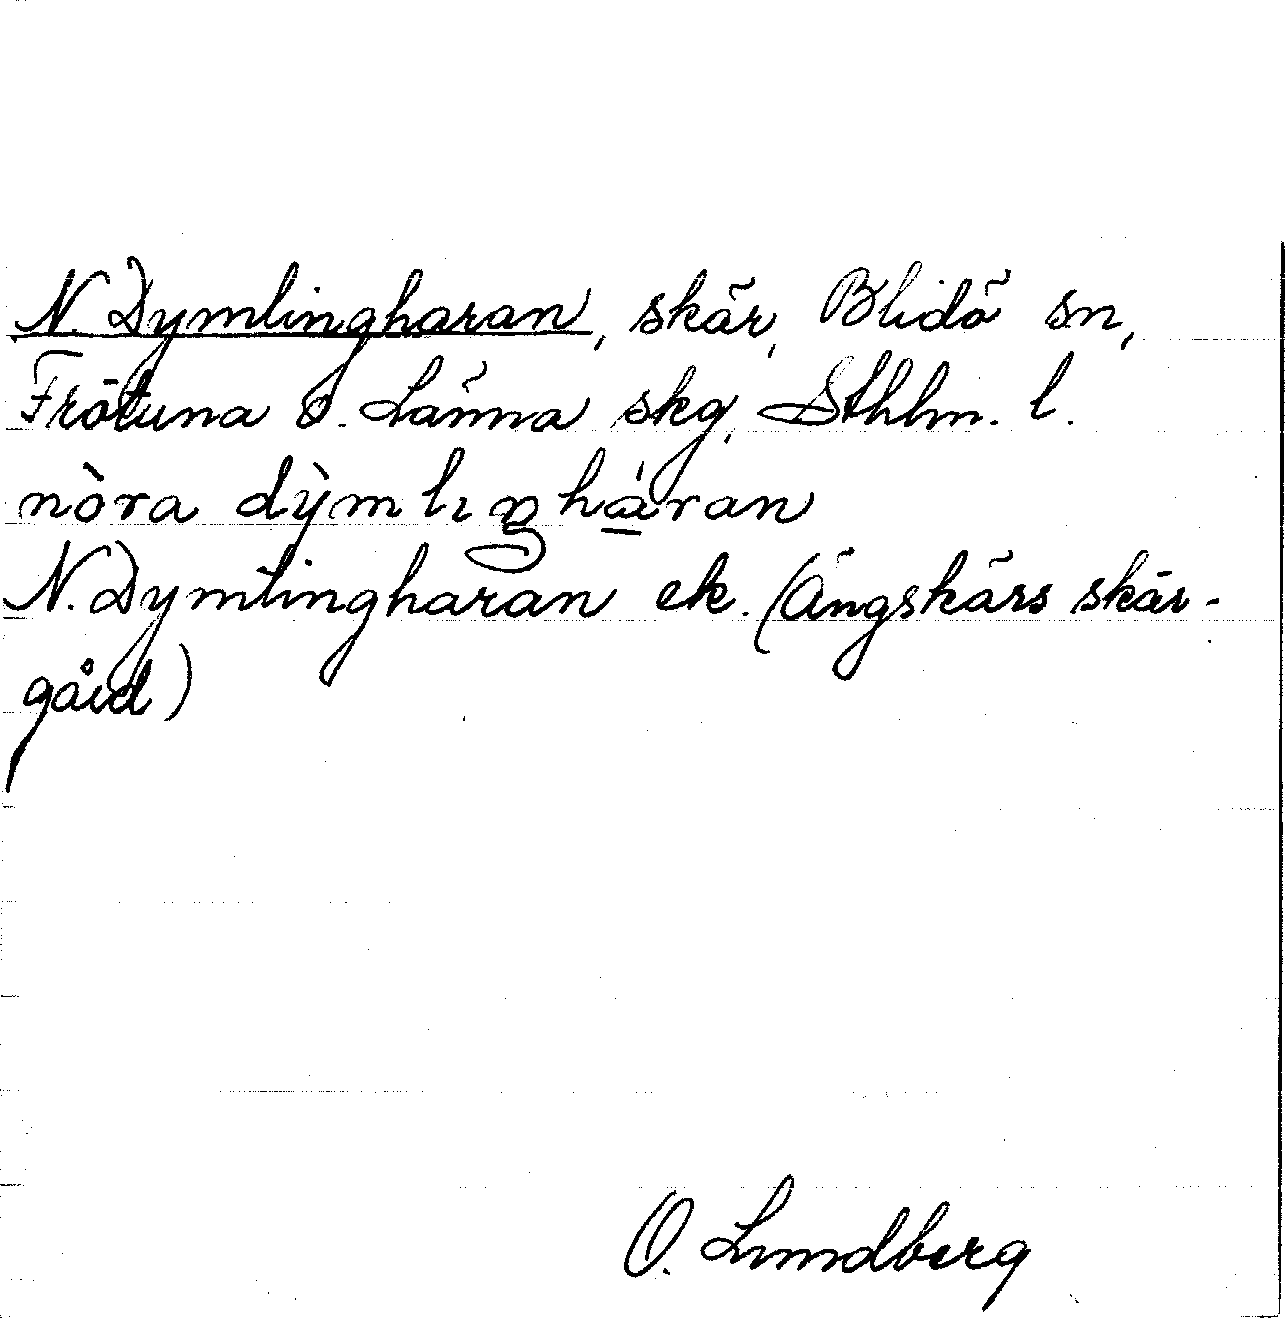 N. Dymlingharan, skär, Blidö sn,
Frötuna o. Länna skg, Sthlm. l.
nòra dỳmlıŋhá̱ran
N. Dymlingharan ek. (Ängskärs skär-
gård)
O. Lundberg